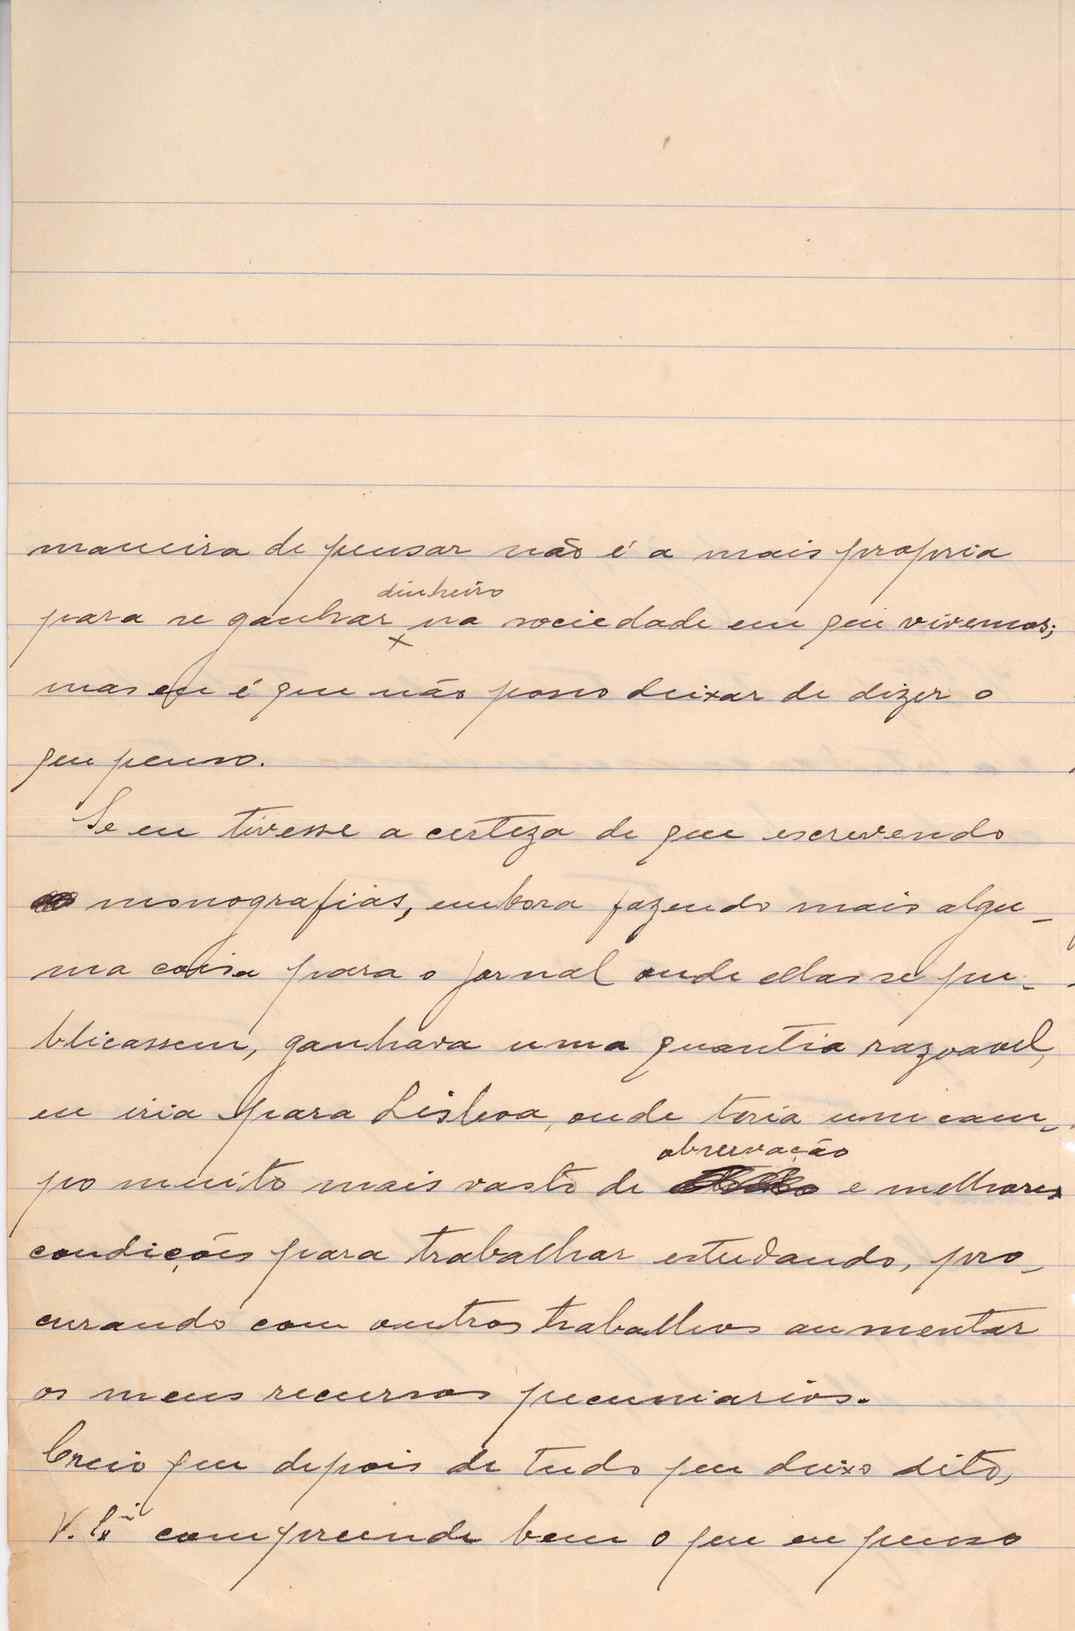 maneira de pensar não é a mais propria
dinheiro
para se ganhar x na sociedade em que vivemos;
mas eu é que não posso deixar de dizer o
que penso.
Se eu tivesse a certeza de que escrevendo
monografias, embora fazendo mais algu-
ma coisa para o jornal onde ellas se pu-
blicassem, ganhava uma quantia razoavel,
eu iria para Lisboa, onde teria um cam-
observação
po muito mais vasto de e melhores
condições para trabalhar estudando, pro-
curando com outros trabalhos aumentar
os meus recursos pecuniarios.
Creio que depois de tudo que deixo dito,
V. Exª compreende bem o que eu penso